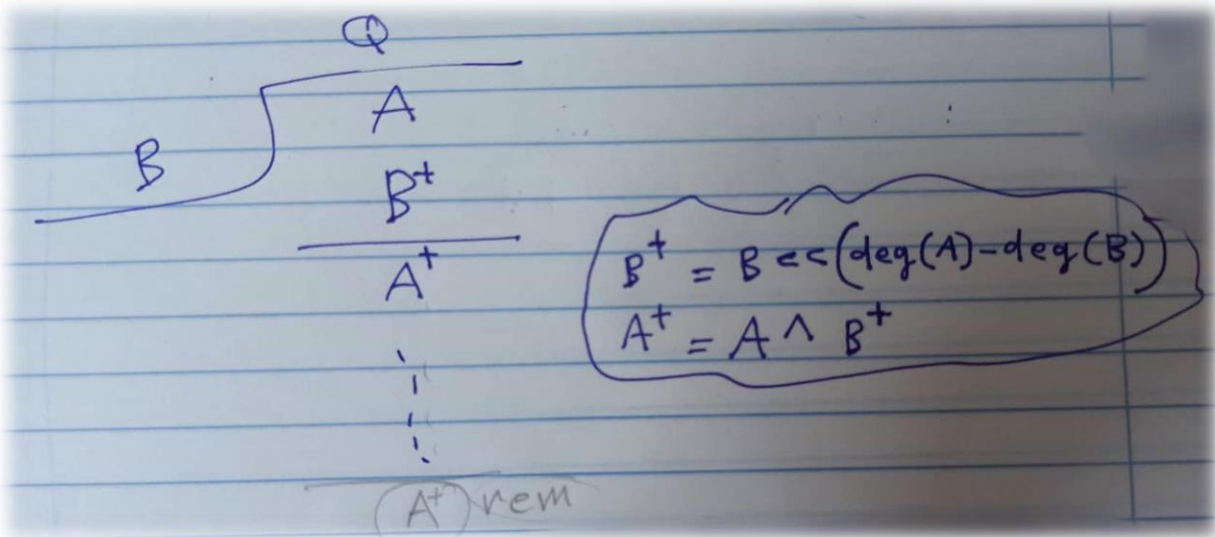 Q
A
B
B⁺
A⁺
B⁺ = B << (deg(A)-deg(B))
A⁺ = A ^ B⁺
A⁺ rem